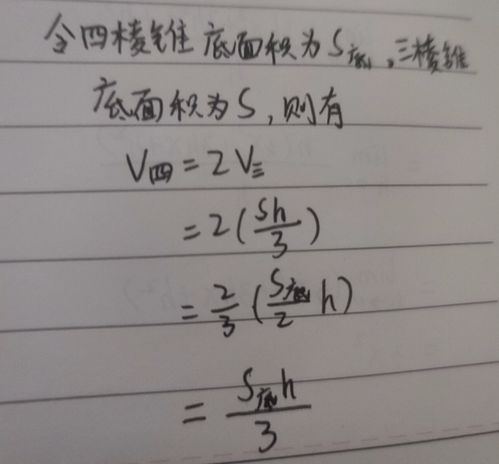 令四棱锥底面积为S底,三棱锥
底面积为S,则有
V四=2V三
=2(Sh/3)
=2/3(S底/2 h)
=S底h/3